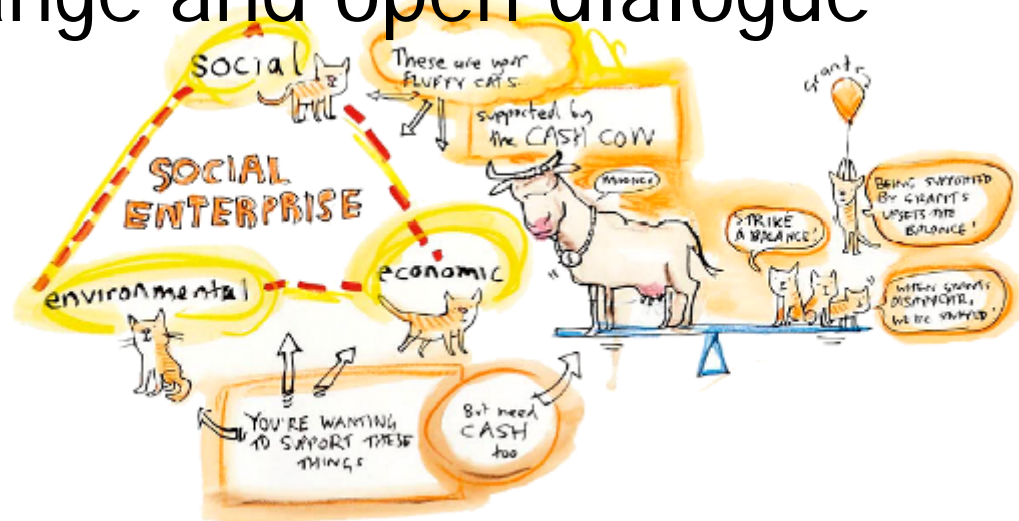 ange and open dialogue
social
These are your
FLUFFY CATS
supported by
the CASH COW
SOCIAL
ENTERPRISE
environmental
economic
grants
BEING SUPPORTED
BY GRANTS
UPSETS THE
BALANCE!
STRIKE
A BALANCE!
WHEN GRANTS
DISAPPEAR,
WE'RE
YOU'RE WANTING
TO SUPPORT THESE
THINGS
But need
CASH
too